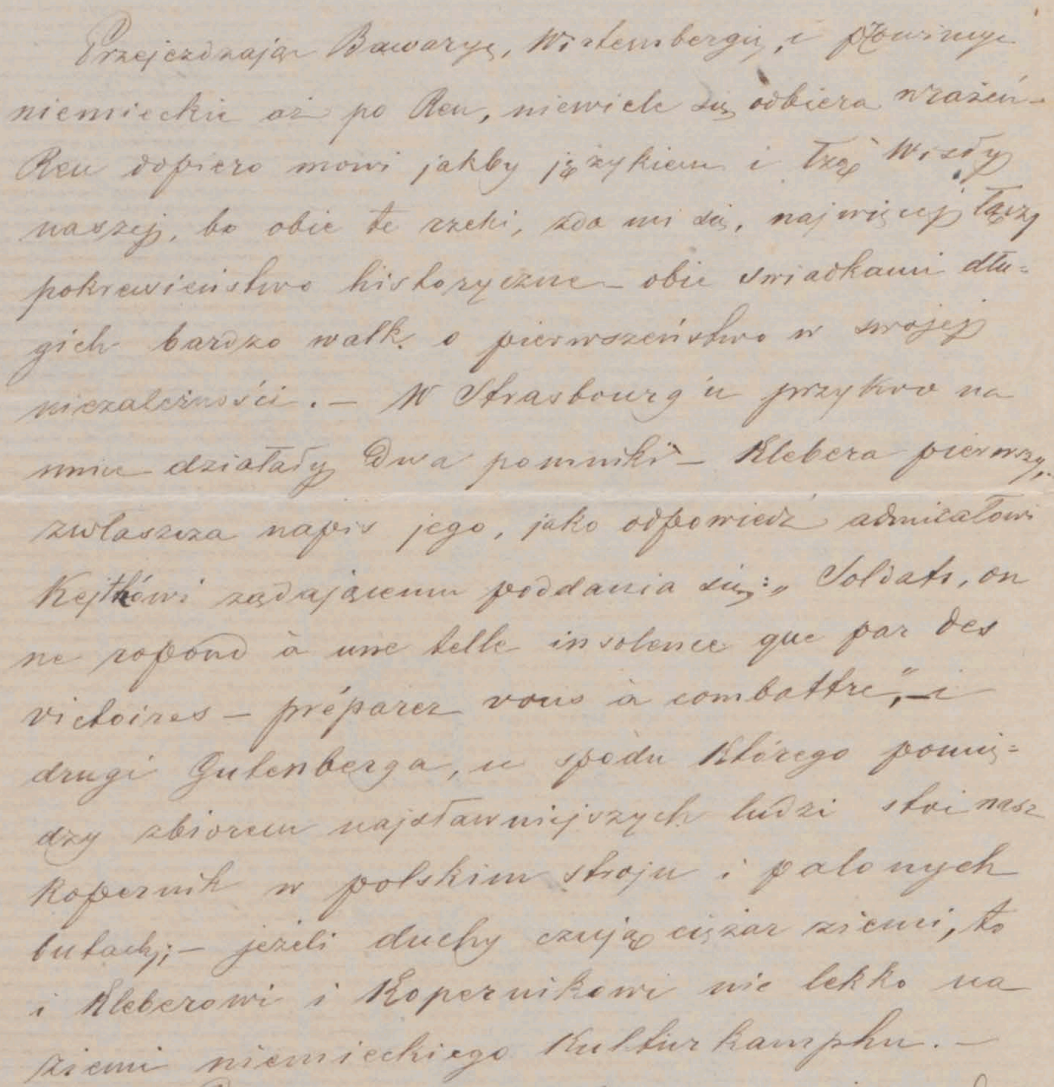 Przejezdzając Bawaryę, Wirtembergię, i prowincye
niemieckie aż po Ren, niewiele się odbiera wrażeń –
Ren dopiero mowi jakby językiem i łzą Wisły
naszej, bo obie te rzeki, zda mi się, najwięcej łączy
pokrewieństwo historyczne – obie swiadkami dłu=
gich bardzo walk o pierwszeństwo w swojej
niezależności. – W Strasbourg'u przykro na
mnie działały dwa pomniki – Klebera pierwszy,
zwłaszcza napis jego, jako odpowiedź admirałowi
Kejthowi żądającemu poddania się: „Soldats, on
ne repond à une telle insolence que par des
victoires – préparez vous à combattre", – i
drugi Gutenberga, u spodu którego pomię=
dzy zbiorem najsławniejszych ludzi stoi nasz
Kopernik w polskim stroju i palonych
butach; – jeżeli duchy czują ciężar ziemi, to
i Kleberowi i Kopernikowi nie lekko na
ziemi niemieckiego Kulturkamphu. –